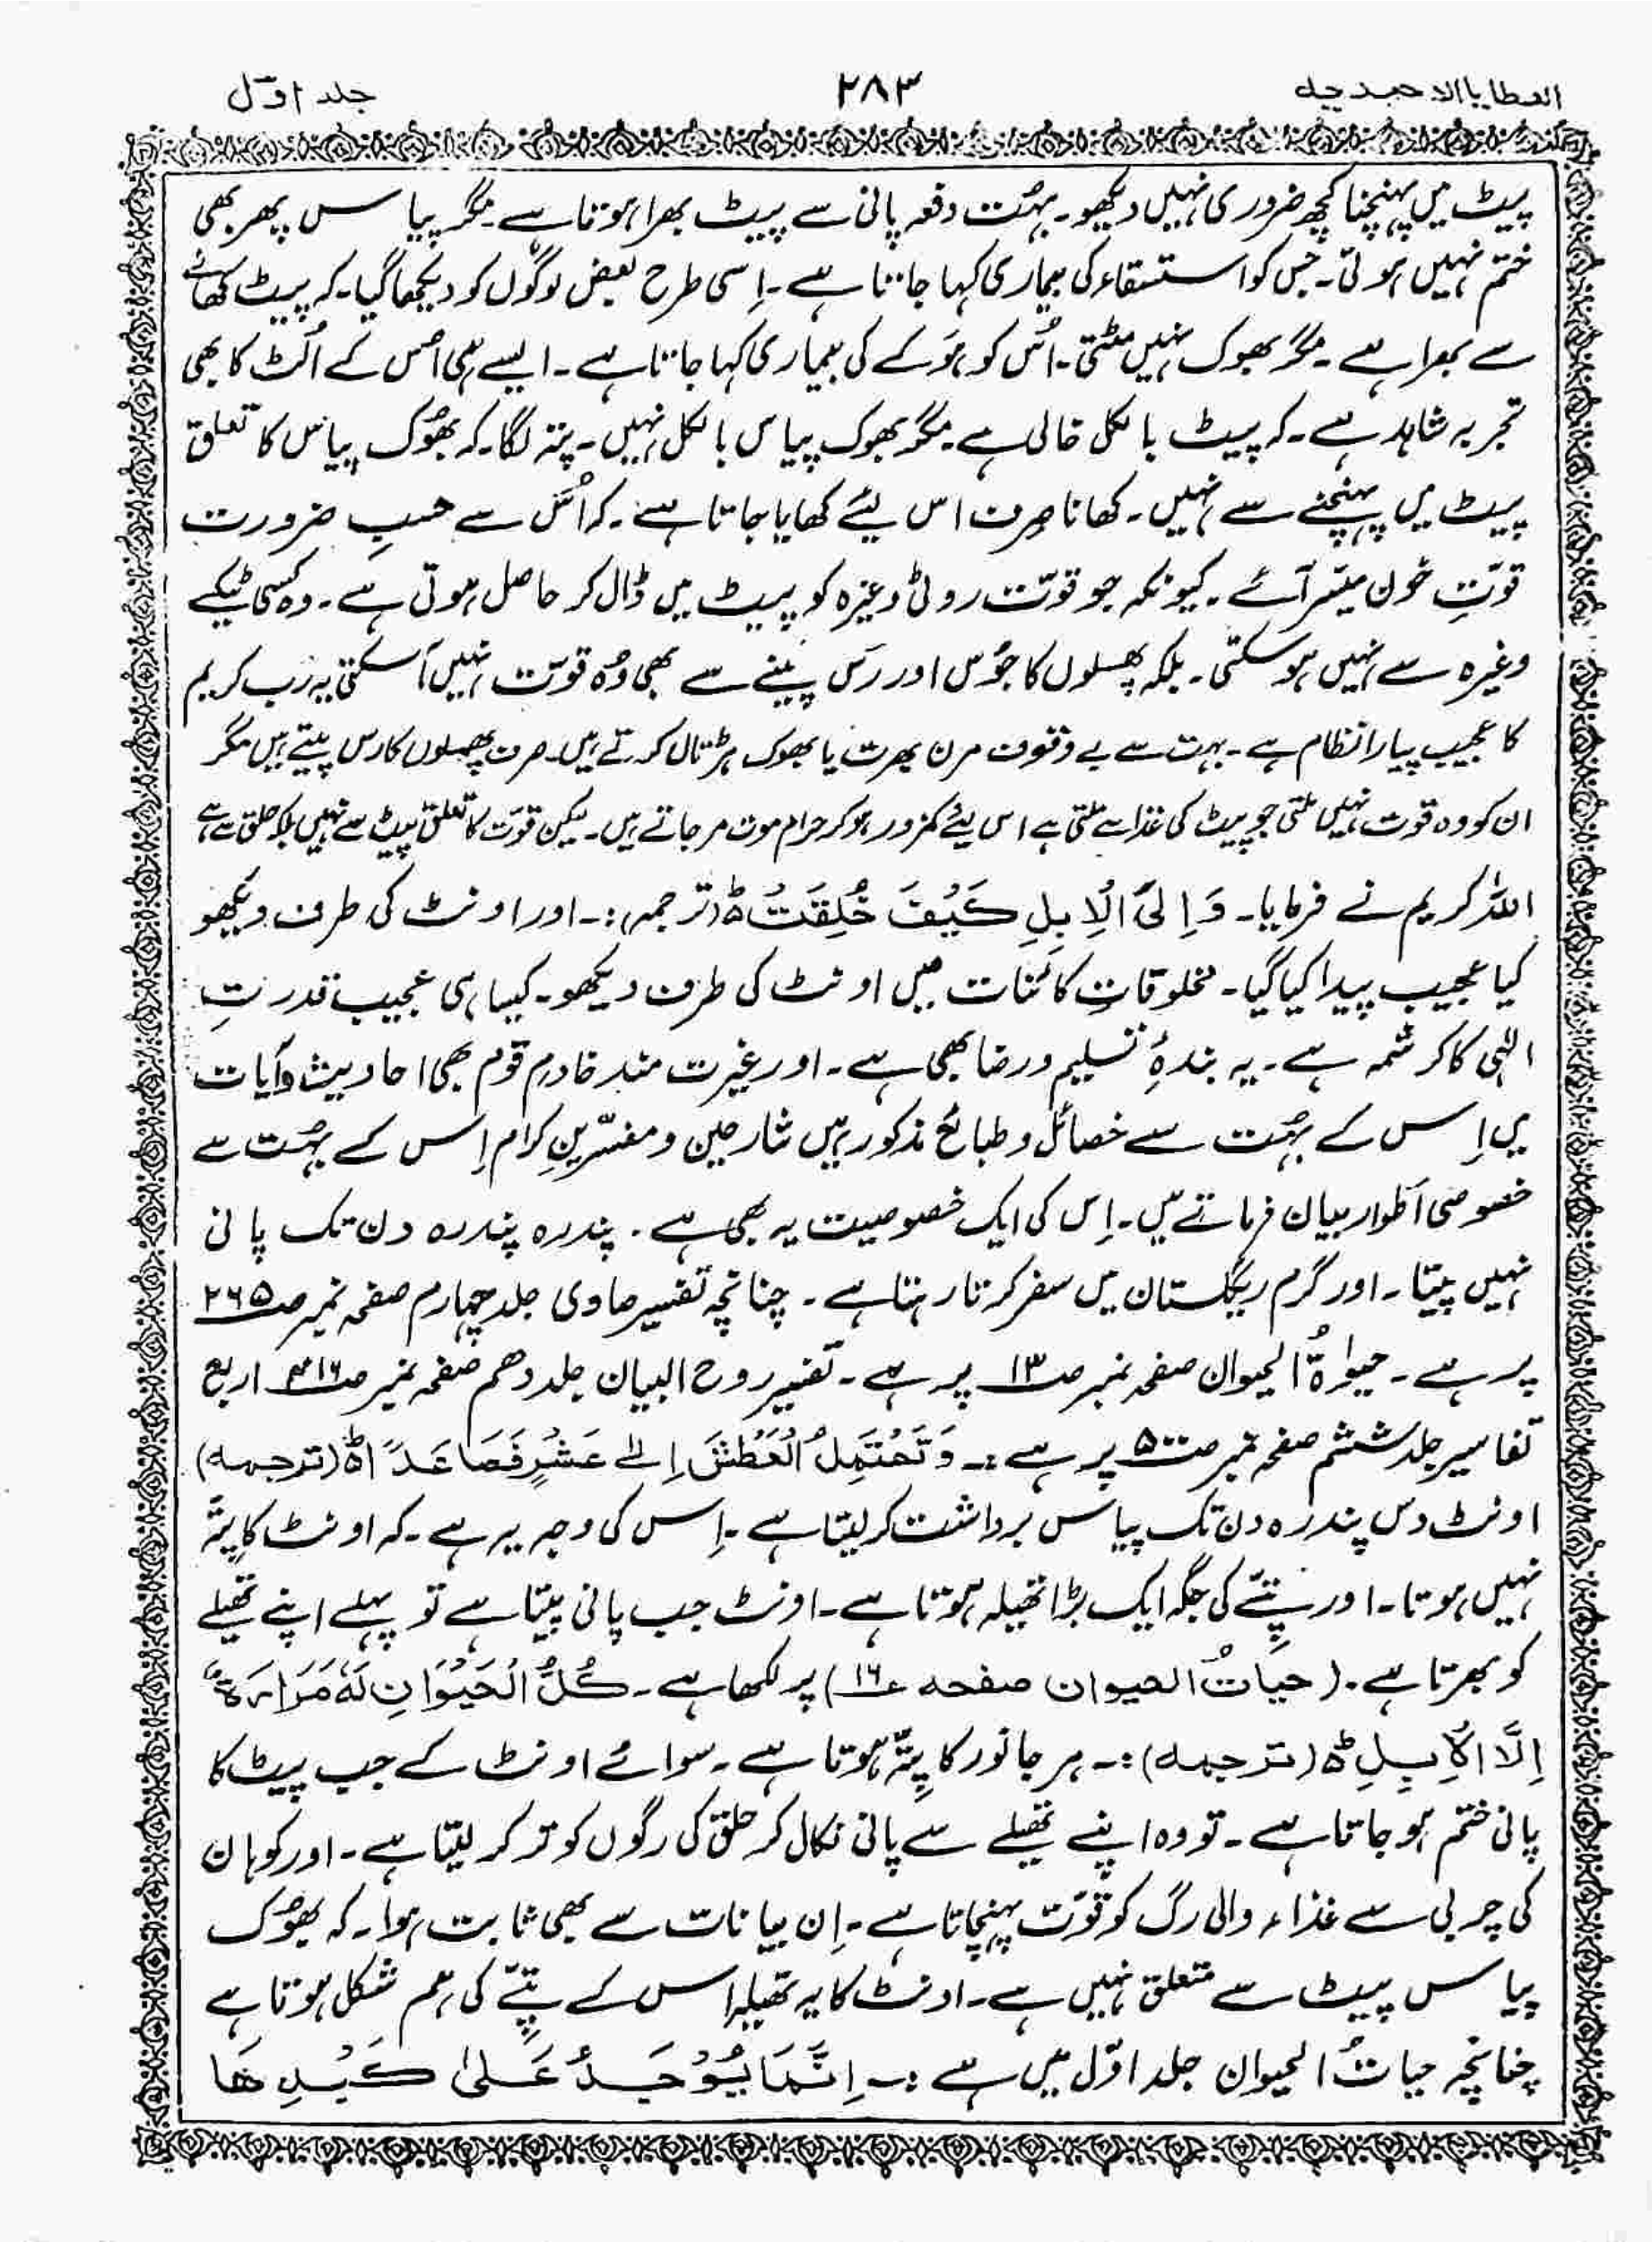 العطایا الاحمدیہ ۲۸۳ جلد اوّل
پیٹ میں پہنچنا کچھ ضروری نہیں دیکھو۔ بہُت دفعہ پانی سے پیٹ بھرا ہوتا ہے۔ مگر پیاس پھر بھی
ختم نہیں ہوتی۔ جس کو استسقاء کی بیماری کہا جاتا ہے۔ اِسی طرح بعض لوگوں کو دیکھا گیا۔ کہ پیٹ کھانے
سے بھرا ہے۔ مگر بھوک نہیں مٹتی۔ اُس کو ہَوکے کی بیماری کہا جاتا ہے۔ ایسے ہی اس کے اُلٹ کا بھی
تجربہ شاہد ہے۔ کہ پیٹ بالکل خالی ہے۔ مگر بھوک پیاس بالکل نہیں۔ پتہ لگا۔ کہ بھوُک پیاس کا تعلق
پیٹ میں پہنچنے سے نہیں۔ کھانا صِرف اس لیٔے کھایا جاتا ہے۔ کہ اُس سے حسبِ ضرورت
قوّتِ خُون میسّر آئے۔ کیونکہ جو قوّت روٹی وغیرہ کو پیٹ میں ڈال کر حاصل ہوتی ہے۔ وہ کسی ٹیکے
وغیرہ سے نہیں ہوسکتی۔ بلکہ پھلوں کا جوُس اور رَس پینے سے بھی وُہ قوّت نہیں آسکتی یہ رَب کریم
کا عجیب پیارا نظام ہے۔ بہت سے بے وقوف مرن بھرت یا بھوک ہڑتال کرتے ہیں۔ صرف پھلوں کا رس پیتے ہیں مگر
ان کو وہ قوت نہیں ملتی جو پیٹ کی غذا سے ملتی ہے اس لیٔے کمزور ہوکر حرام موت مرجاتے ہیں۔ لیکن قوّت کا تعلق پیٹ سے نہیں بلکہ حلق سے ہے
اللہ کریم نے فرمایا۔ وَاِلَی الْاِبِلِ کَیْفَ خُلِقَتْ ہ (ترجمہ):۔ اور اونٹ کی طرف دیکھو
کیا عجیب پیدا کیا گیا۔ مخلوقاتِ کائنات میں اونٹ کی طرف دیکھو۔ کیسا ہی عجیب قدرتِ
الٰہی کا کرشمہ ہے۔ یہ بندۂِ تسلیم ورضا بھی ہے۔ اور غیرت مند خادمِ قوم بھی احادیث وآیات
میں اِس کے بہُت سے خصائل وطبائع مذکور ہیں شارحین ومفسّرینِ کرام اِس کے بہُت سے
خصوصی اَطوار بیان فرماتے ہیں۔ اِس کی ایک خصوصیت یہ بھی ہے۔ پندرہ پندرہ دن تک پانی
نہیں پیتا۔ اور گرم ریگستان میں سفر کرتا رہتا ہے۔ چنانچہ تفسیر صاوی جلد چہارم صفحہ نمبر صـ۲۶۵
پر ہے۔ حیوٰۃُ الحیوان صفحہ نمبر صـ۱۳ پر ہے۔ تفسیر روح البیان جلد دھم صفحہ نمبر صـ۴۱۶ اربع
تفاسیر جلد ششم صفحہ نمبر صـ۵۰۰ پر ہے:۔ وَتَحْتَمِلُ الْعَطْشَ اِلٰی عَشْرٍ فَصَاعَدًا ہ (ترجمہ)
اونٹ دس پندرہ دن تک پیاس برداشت کرلیتا ہے۔ اِس کی وجہ یہ ہے۔ کہ اونٹ کا پِتّہ
نہیں ہوتا۔ اور پِتّے کی جگہ ایک بڑا تھیلہ ہوتا ہے۔ اونٹ جب پانی پیتا ہے تو پہلے اپنے تھیلے
کو بھرتا ہے۔ (حیاتُ الحیوان صفحہ عـ۱۶) پر لکھا ہے۔ کُلُّ الْحَیْوَانِ لَہٗ مَرَارَۃٌ
اِلَّا الْاِبِلِ ہ (ترجمہ):۔ ہر جانور کا پِتّہ ہوتا ہے۔ سوائے اونٹ کے جب پیٹ کا
پانی ختم ہوجاتا ہے۔ تو وہ اپنے تھیلے سے پانی نکال کر حلق کی رگوں کو تر کرلیتا ہے۔ اور کوہان
کی چربی سے غذاء والی رگ کو قوّت پہنچاتا ہے۔ اِن بیانات سے بھی ثابت ہوا۔ کہ بھوُک
پیاس پیٹ سے متعلق نہیں ہے۔ اونٹ کا یہ تھیلہ اس کے پِتّے کی ہم شکل ہوتا ہے
چنانچہ حیاتُ الحیوان جلد اوّل میں ہے:۔ اِنَّمَا یُوْجَدُ عَلٰی کَبْدِھَا